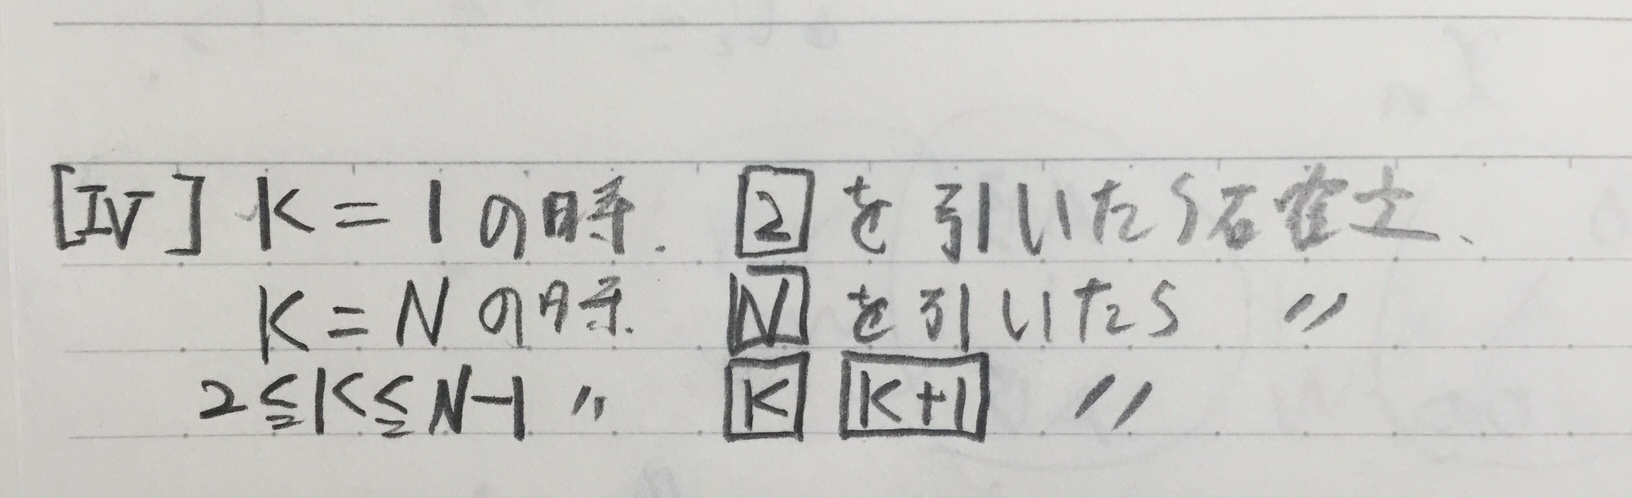 [IV] K = 1の時. 2 を引いたら確定、
K = N の時. N を引いたら 〃
2≦K≦N-1 〃 K K+1 〃